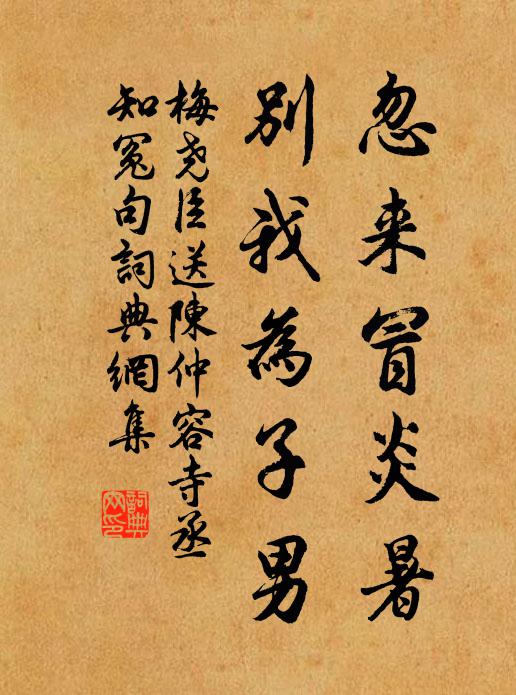 忽来冒炎暑
别我為子男
梅尧臣送陳仲容寺丞
知冤句詞典網集
詞典
网印